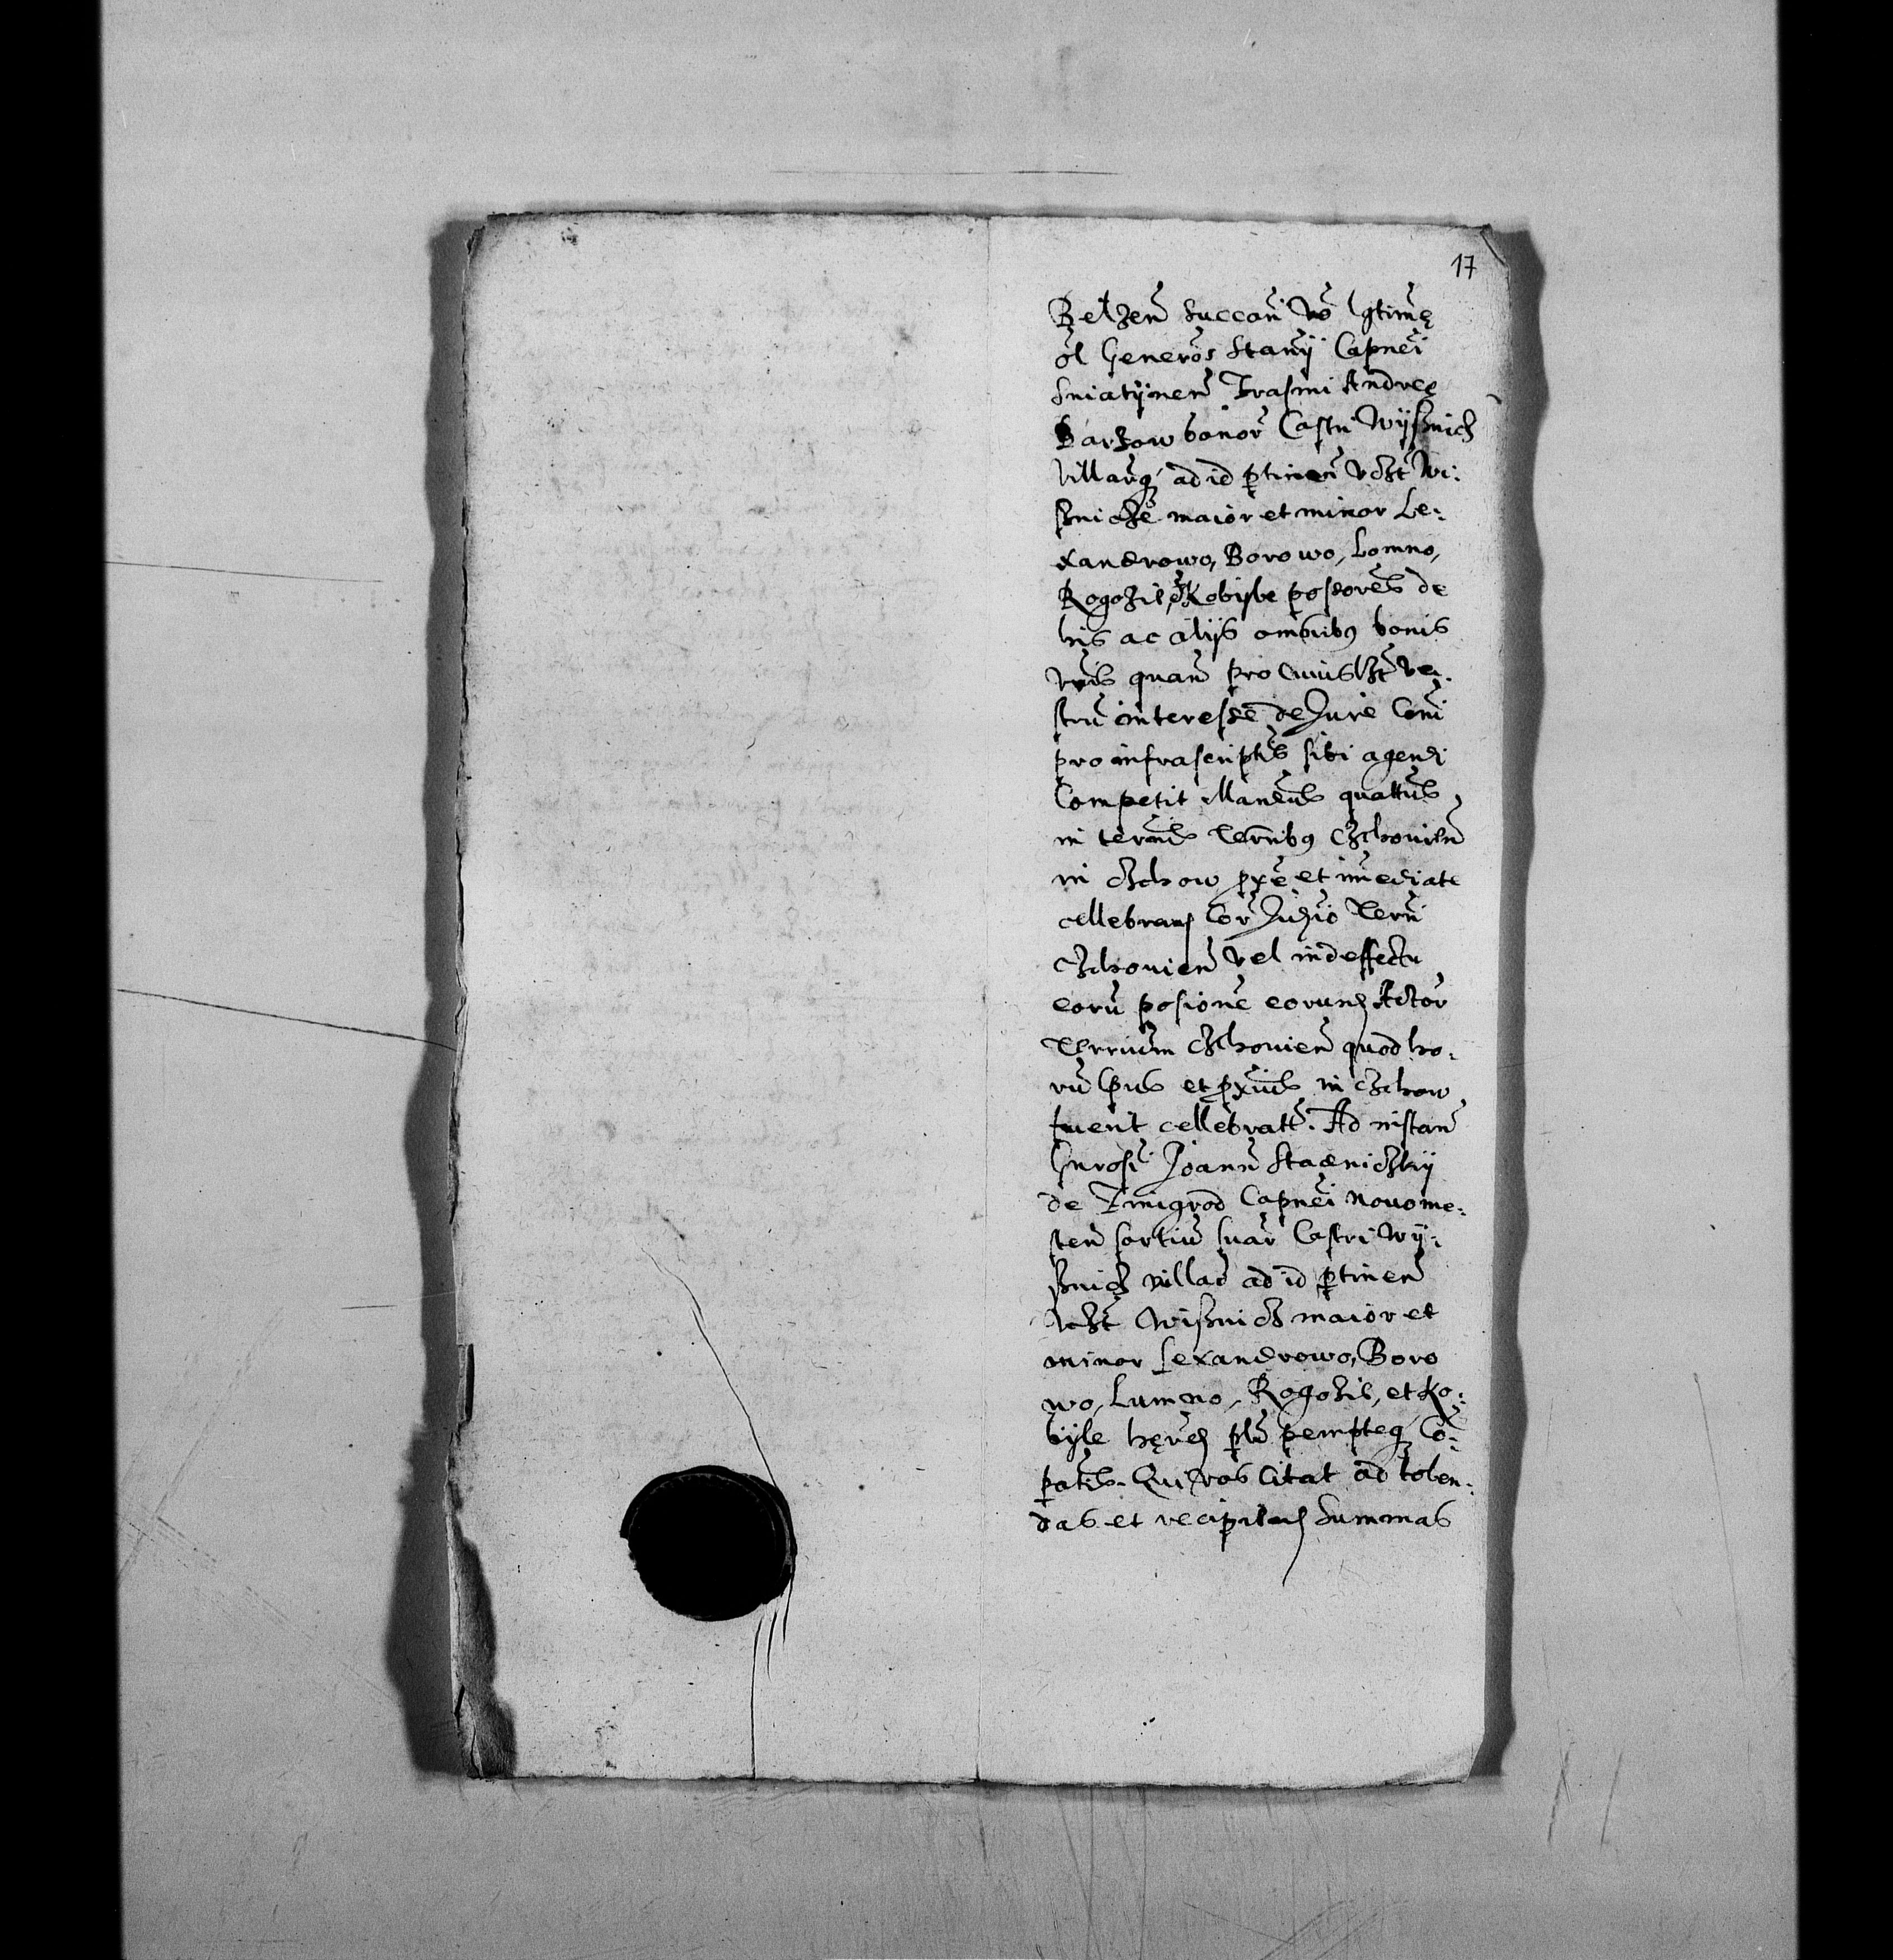 17
Belzen succam vo lgtimę
ol Generos Stanij Capnei
Sniatijnen Erasmi Andreę
Barzow bonor Castri Wijsznicz
villarq ad id ptinen vdzt Wi:
sznicze maior et minor Le:
xandrowo, Borowo, Lomno,
Rogozie, et Kobijle possores de
his ac alijs omnibus bonis
vris quam pro cuiuslzt ve:
stru interesse de Jure Coni
pro infrascriptis sibi agendi
Competit Mandus quattus
in termis Terribus Czchouien
in Czchow pxe et imediate
cellebrand Cor Judicio Terri
Czchouien vel in deffectu
eoru posione eorund Actor
Terrium Czchouien quod ho:
ru et pximis in Czchow
fuerit cellebratt. Ad instan
Gnrosi Joann Stadniczkij
de Zmigrod Capnei Novome:
sten sortiu suar Castri Wij:
sznicz villar ad id ptinen
vdzt Wisznicz maior et
minor Lexandrowo, Boro
wo, Lumno, Rogozie, et Ko:
bijle hęred plr pempteq Co:
patis. Qui vos Citat ad tolen:
das et recipiend Summas